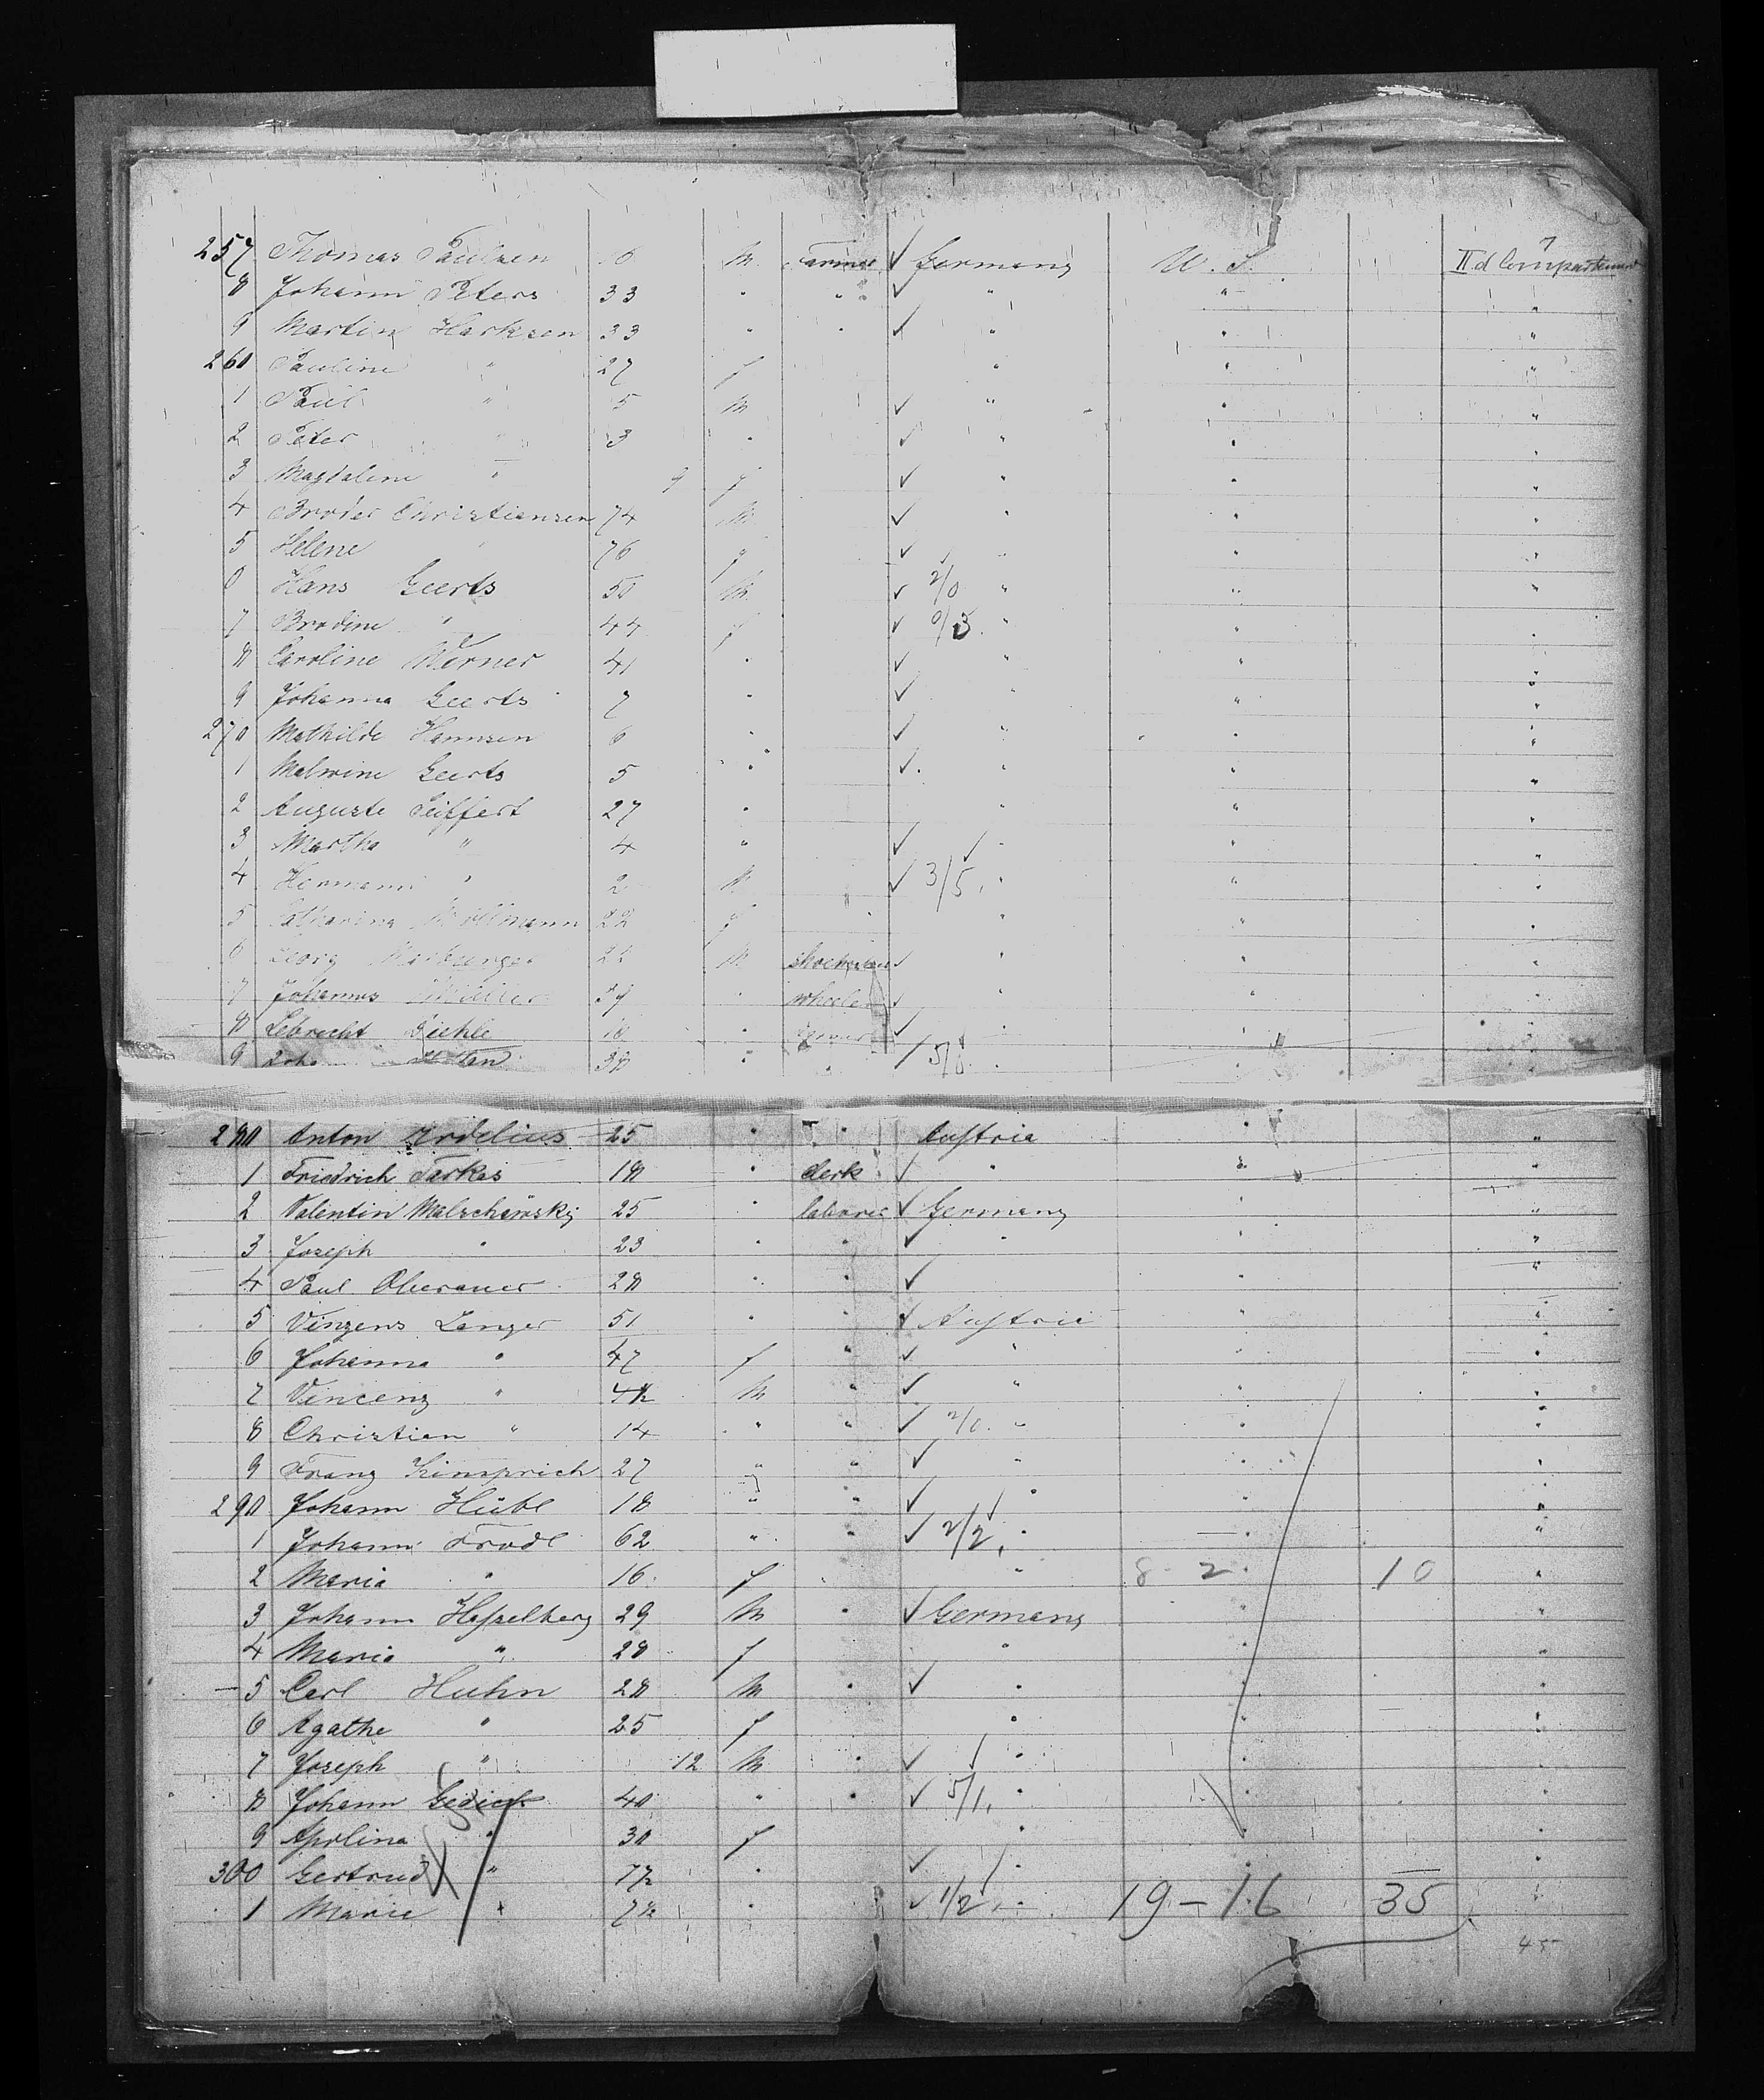 257 Thomas Paulsen 16 m. farmer ✓ Germany U. S. II d Compartment
8 Johann Peters 33 " " ✓ " " "
9 Martin Harksen 33 " " ✓ " " "
260 Pauline " 27 f " " "
1 Paul " 5 m ✓ " " "
2 Peter " 3 " ✓ " " "
3 Magdalene " 9 f ✓ " " "
4 Broder Christiansen 74 m ✓ " " "
5 Helene " 76 f ✓ " " "
6 Hans Geerts 50 m ✓ 2/0 " " "
7 Brodine " 44 f ✓ 0/3 " " "
8 Caroline Werner 41 " ✓ " " "
9 Johanna Geerts 7 " ✓ " " "
270 Mathilde Hannsen 6 " ✓ " " "
1 Malwine Geerts 5 " ✓ " " "
2 Auguste Seiffert 27 " " " "
3 Martha " 4 " ✓ " " "
4 Hermann " 2 m ✓ 3/5 " " "
5 Catharina 22 f " " "
6 Georg m ✓ " " "
7 Johannes Müller " wheeler ✓ " " "
8 Lebrecht Diehle " ✓ " " "
9 38 " " ✓ " " "
280 Anton 25 " " Austria " "
1 Friedrich Farkas 18 " clerk ✓ " " "
2 Valentin 25 " laborer ✓ Germany " "
3 Joseph " 23 " " ✓ " " "
4 Paul Oberauer 28 " " ✓ " "
5 Vinzens Langer 51 " " ✓ Austria " "
6 Johanna " 47 f " ✓ " " "
7 Vincenz " m " ✓ " " "
8 Christian " 14 " " ✓ 2/0 " " "
9 Franz Kinsprich 27 " " ✓ " " "
290 Johann Hübl 18 " " ✓ " " "
1 Johann Frodl 62 " " ✓ 2/2 " " "
2 Maria " 16 f " 8 - 2 " 10 "
3 Johann Hasselberg 29 m " ✓ Germany " "
4 Maria " 28 f " " "
5 Carl Huhn 28 m " ✓ " " "
6 Agathe " 25 f " " "
7 Joseph " 12 m " ✓ " " "
8 Johann 40 " " ✓ 5/1 " " "
9 Apolina " 30 f " " "
300 Gertrud " " ✓ " " "
1 Marie " " ✓ 1/2 " 19 - 16 35 "
45